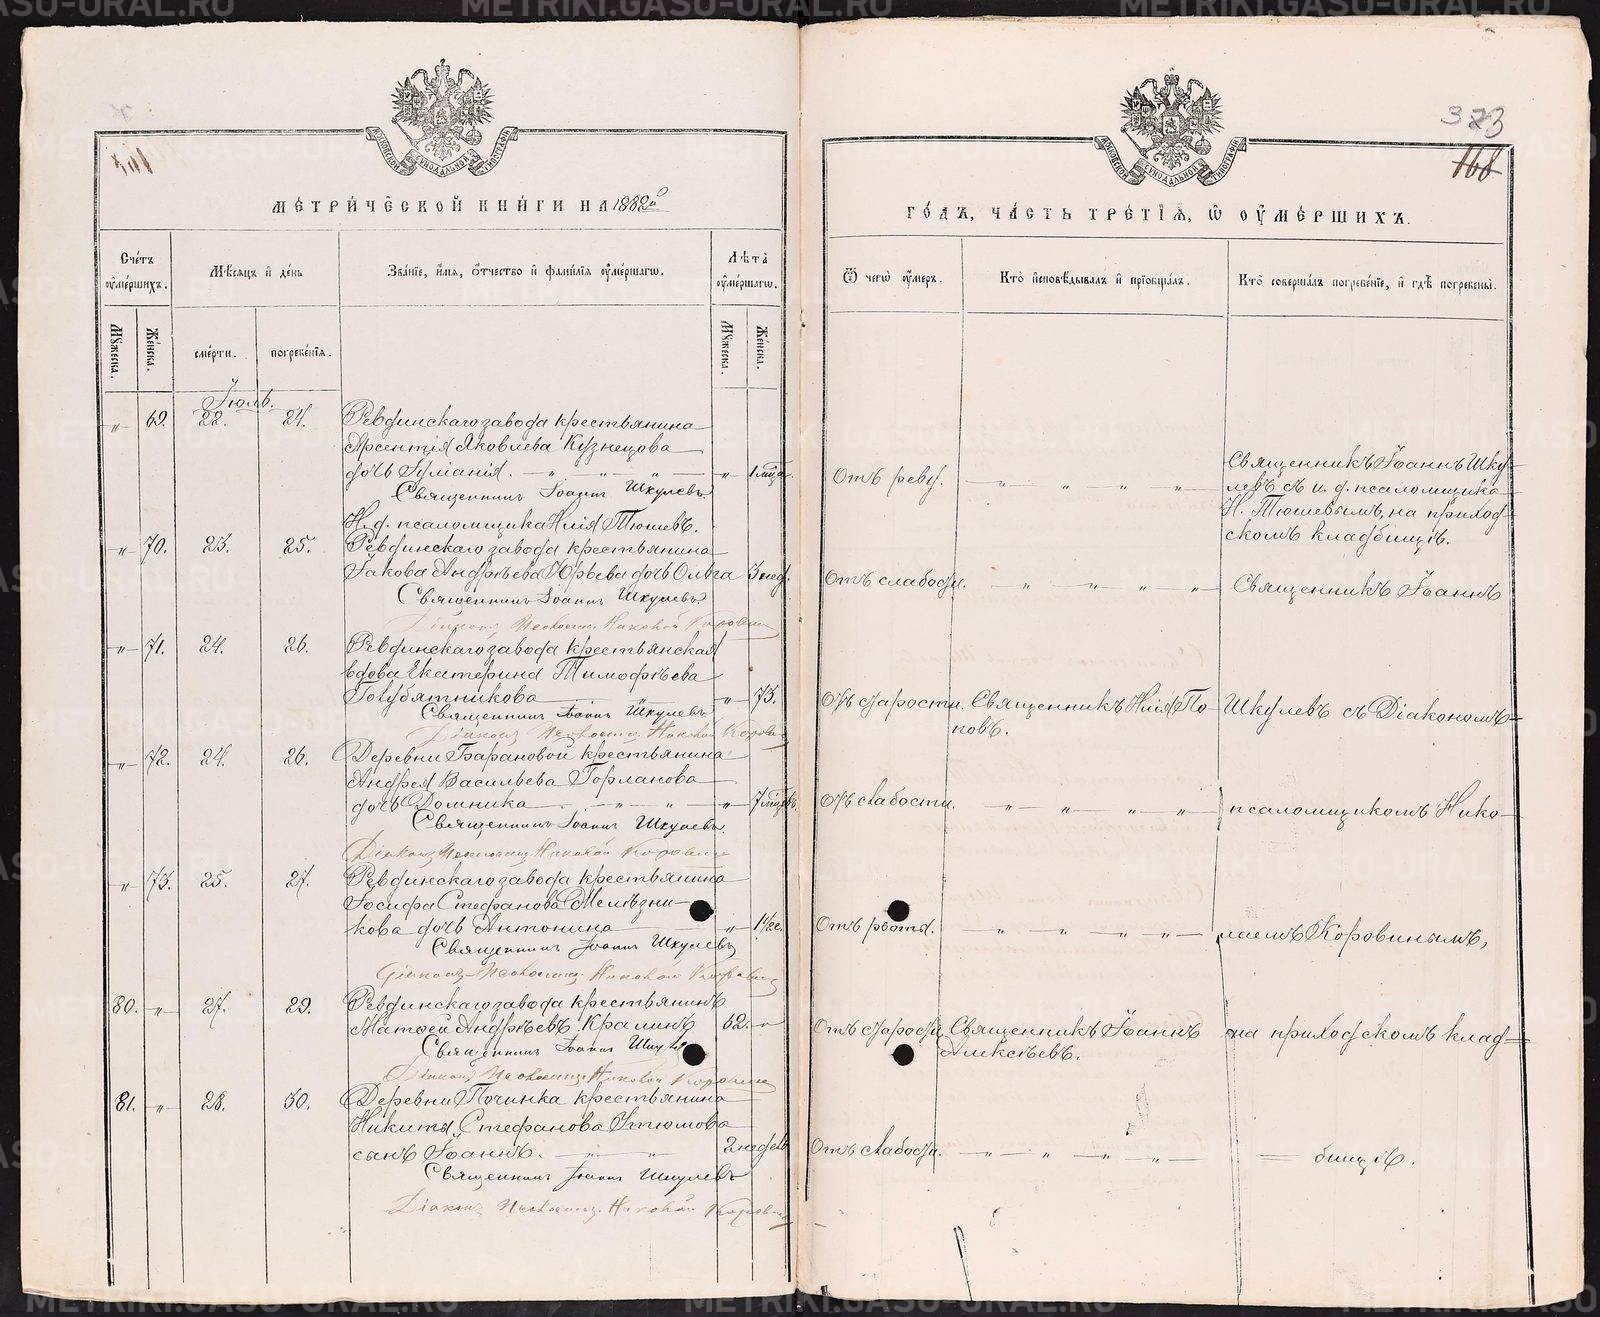 МЕТРИЧЕСКОЙ КНИГИ НА 1882й
Счетъ оумершихъ.
Мѣсяцъ и день
Званіе, имя, отчество и фамилія оумершагѡ.
Лѣта оумершагѡ.
Мужеска.
Женска.
смерти.
погребенія.
Мужеска.
Женска.
Іюль.
" 69. 22. 24. Ревдинскаго завода крестьянина
Арсентія Яковлева Кузнецова
дочь Іуліанія. " " " " 1 мѣца.
Священникъ Іоаннъ Шкулевъ.
И. д. псаломщика Илія Тюшевъ.
" 70. 23. 25. Ревдинскаго завода крестьянина
Іакова Андрѣева Юрьева дочь Ольга 3 нед.
Священникъ Іоаннъ Шкулевъ
Діаконъ Псаломщ. Николай Коровинъ
" 71. 24. 26. Ревдинскаго завода крестьянская
вдова Екатерина Тимофѣева
Голубятникова " " 73.
Священникъ Іоаннъ Шкулевъ
Діаконъ Псаломщ. Николай Коровинъ
" 72. 24. 26. Деревни Барановой крестьянина
Андрея Васильева Горланова
дочь Домника " " " 7 мѣцевъ
Священникъ Іоаннъ Шкулевъ
Діаконъ Псаломщ. Николай Коровинъ
" 73. 25. 27. Ревдинскаго завода крестьянина
Іосифа Стефанова
кова дочь Антонина "
Священникъ Іоаннъ Шкулевъ
Діаконъ Псаломщ. Николай Коровинъ
80. " 27. 29. Ревдинскаго завода крестьянинъ
Матѳей Андрѣевъ Кралинъ 62. "
Священникъ Іоаннъ
Діаконъ Псаломщ. Николай Коровинъ
81. " 28. 30. Деревни Починка крестьянина
Никиты Стефанова Утюмова
сынъ Іоаннъ. " " 2 недѣль
Священникъ Іоаннъ Шкулевъ
Діаконъ Псаломщ. Николай Коровинъ
373
168
ГОДЪ, ЧАСТЬ ТРЕТІЯ, Ѿ ОУМЕРШИХЪ.
Ѿ чегѡ оумеръ.
Кто исповѣдывалъ и пріобщалъ.
Кто совершалъ погребеніе, и гдѣ погребены.
Священникъ Іоаннъ Шку-
Отъ реву. " " " " левъ съ и. д. псаломщика
И. Тюшевымъ, на приход-
скомъ кладбищѣ.
Отъ слабости. " " " " Священникъ Іоаннъ
Отъ старости. Священникъ Илія По- Шкулевъ съ Діакономъ
повъ.
Отъ слабости. " " " " псаломщикомъ Нико-
Отъ рвоты. " " " " лаемъ Коровинымъ,
Отъ старости Священникъ Іоаннъ на приходскомъ клад-
Алексѣевъ.
Отъ слабости. " " " " бищѣ.
METRIKI.GASO-URAL.RU